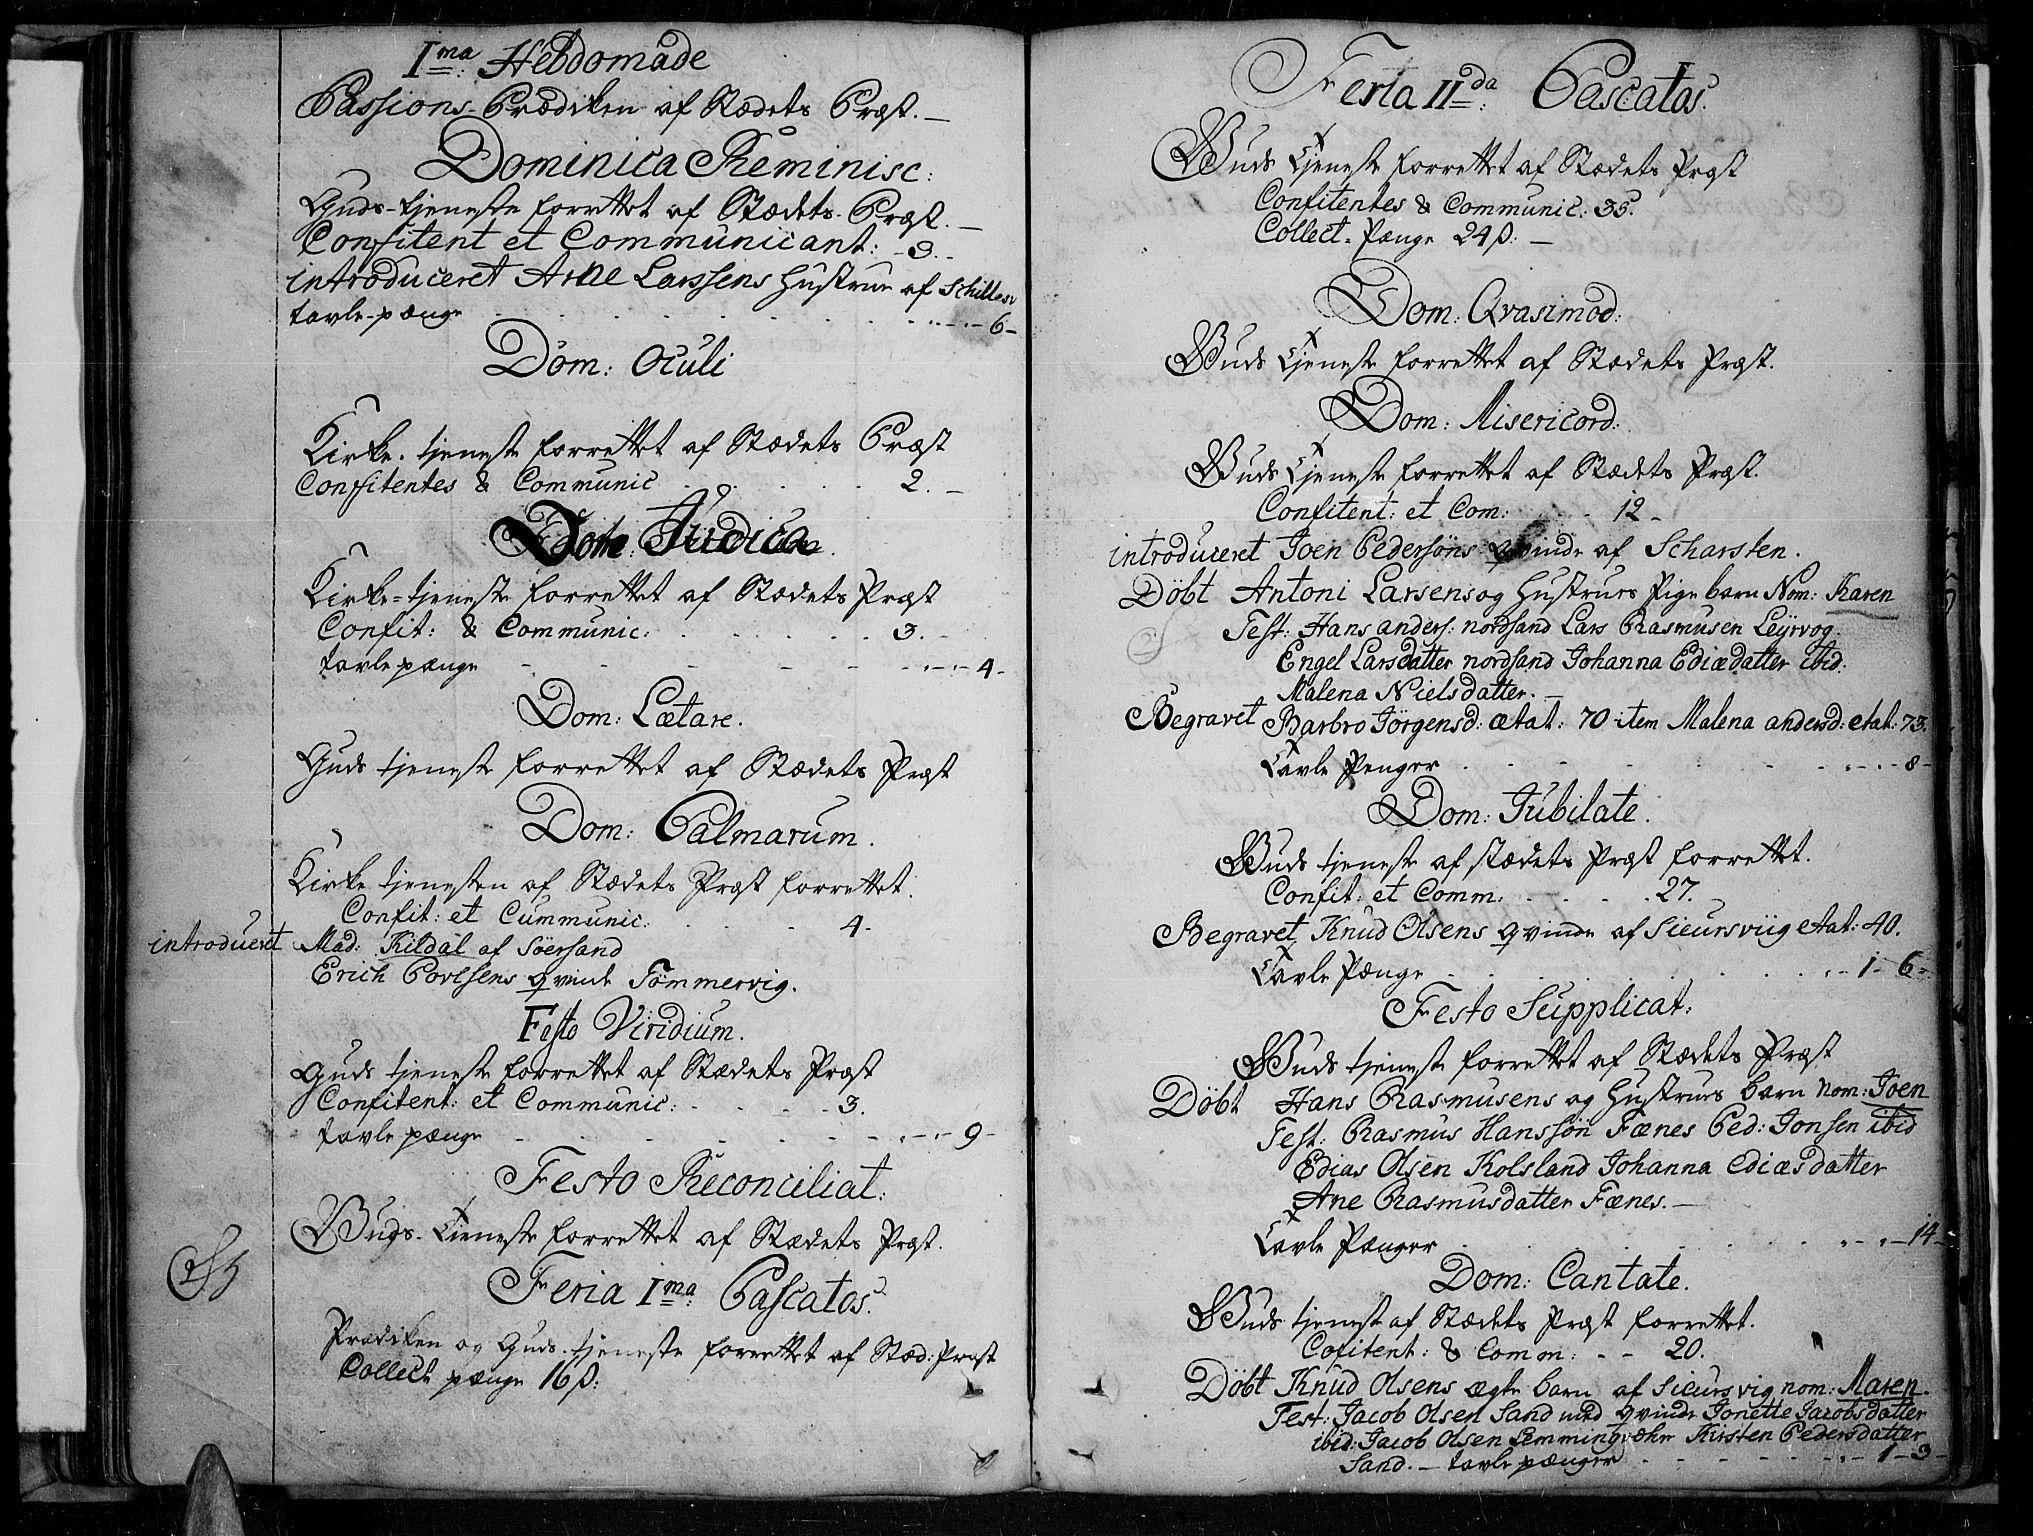 I<sup>ma</sup>: Hebdomade
Passions-Prædiken af Stædets Præst. —
Dominica Reminisc:
Guds-tjeneste forrettet af Stædets Præst. —
Confitent et Communicant: - 3. -
introduceret Arne Larssens Hustrue af
tavle-pænge - - - 6 -
Dom: Oculi
Kirke-tjeneste forrettet af Stædets Præst
Confitentes & Communic - - - 2. -
Dom: Judica
Kirke-tjeneste forrettet af Stædets Præst
Confit: & Communic: - - - 3. -
tavle pænge - - - 4 -
Dom: Lætare.
Guds tjeneste forrettet af Stædets Præst
Dom: Palmarum.
Kirke tjenesten af Stædets Præst forrettet.
Confit: et Cummunic: - - - 4. -
introdueret Mad: Kildal af Söersand
Erich Povlsens qvinde Tömmervig.
Festo Viridium.
Guds tjeneste forrettet af Stædets Præst
Confitent: et Communic: - - - 3.
tavle pænge - - - 9 -
Festo Reconciliat:
Guds-Tieneste forrettet af Stædets Præst.
Feria I<sup>ma</sup>: Pascatos.
Prædiken og Guds-tjeneste forrettet af Stæd: Præst
Collect pænge 16 ß:
Feria II<sup>da</sup>: Pascatos.
Guds Tjeneste forrettet af Stædets Præst
Confitentes & Communic: 35.
Collect-Pænge 24 ß: —
Dom: Qvasimod:
Guds Tjeneste forrettet af Stædets Præst.
Dom: Misericord:
Guds Tjeneste forrettet af Stædets Præst.
Confitent: et Com: - - 12 -
introduceret Joen Pedersöns qvinde af Scharsten.
Döbt Antoni Larsens og Hustrues Pige barn Nom: Karen
Test: Hans anders: nordsand Lars Rasmusen Leÿrvog.
Engel Larsdatter nordsand Johanna Ediædatter ibid:
Malena Nielsdatter. —
Begravet Barbro Jörgensd: ætat: 70 item Malena andersd: etat: 73.
Tavle Penger - - - 8 -
Dom: Jubilate.
Guds tjeneste af stædets Præst forrettet.
Confit: et Comm: - - - 27.
Begravet Knud Olsens qvinde af Sieursviig etat: 40.
Tavle Pænge - - - 1 - 6 -
Festo Supplicat:
Guds tjeneste forrettet af Stædets Præst
Döbt Hans Rasmusens og Hustrues barn nom: Joen
Test: Rasmus Hanssön Fænes Ped: Jonsen ibid
Edias Olsen Kolsland Johanna Ediæsdatter
Ane Rasmusdatter Fænes. —
Tavle Pænger - - - 14 -
Dom: Cantate.
Guds tjenest af Stædets Præst forrettet.
Cofitent: & Comm: - - 20.
Döbt Knud Olsens ægte barn af Sieursvig nom: Maren.
Test: Jacob Olsen Sand med qvinde Jonette Jacobsdatter
ibid: Jacob Olsen Kirsten Pedersdatter
Sand. — tavle pænger - - - 1 - 3 -